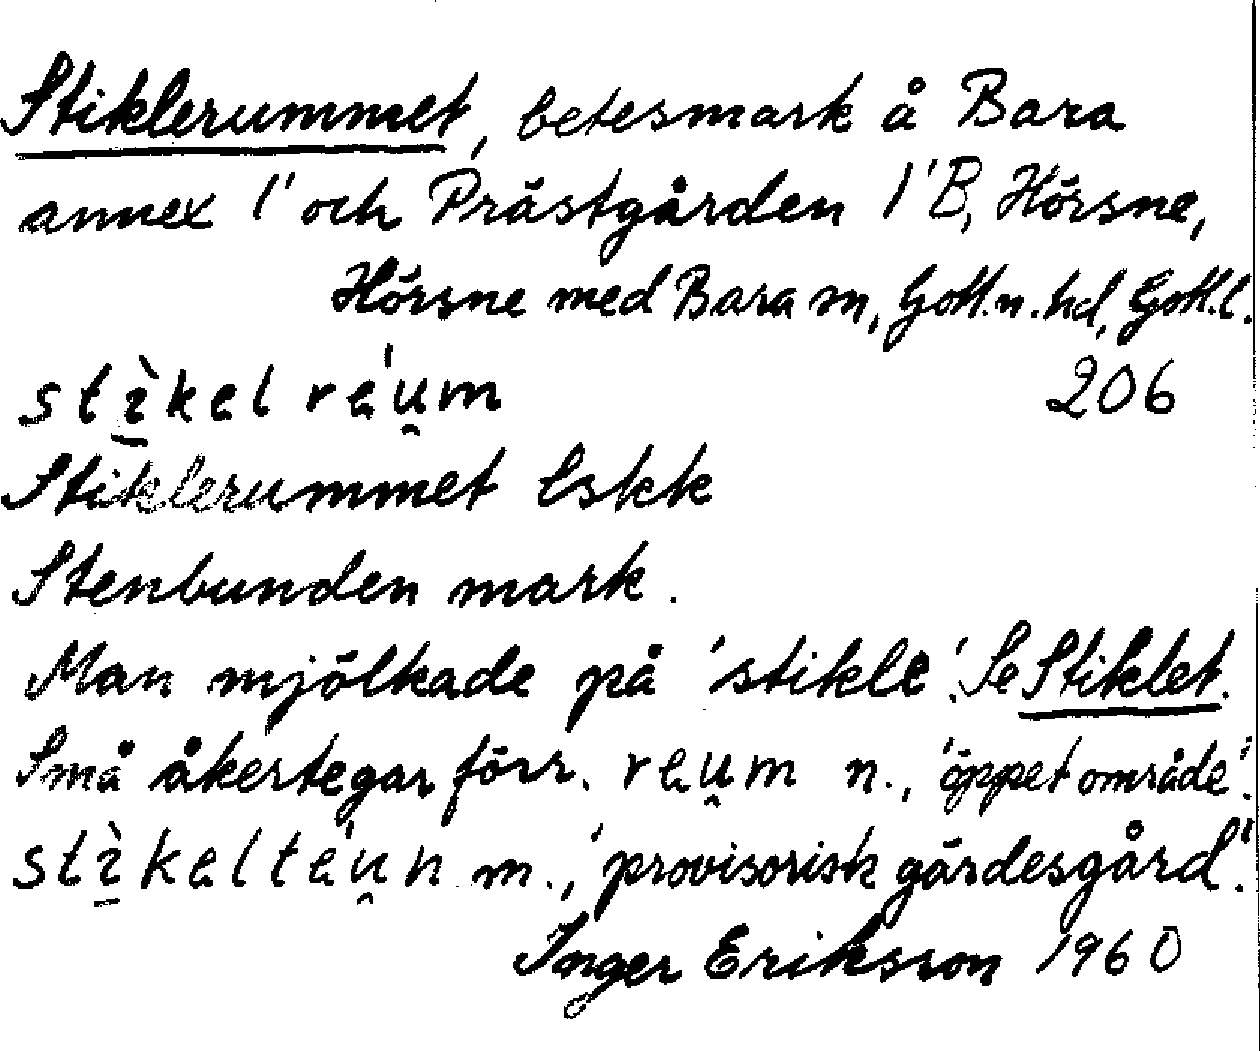 Stiklerummet, betesmark å Bara
annex 1¹ och Prästgården 1¹ B, Hörsne,
Hörsne med Bara sn, Gotl.n.hd, Gotl.l.
stɩ̀kəl rəˈu̯m 206
Stiklerummet Eskk
Stenbunden mark.
Man mjölkade på 'stikle'. Se Stiklet.
Små åkertegar förr. rəu̯m n., 'öppet område'.
stɩ̀kəltəˈu̯n m., 'provisorisk gärdesgård'.
Inger Eriksson 1960